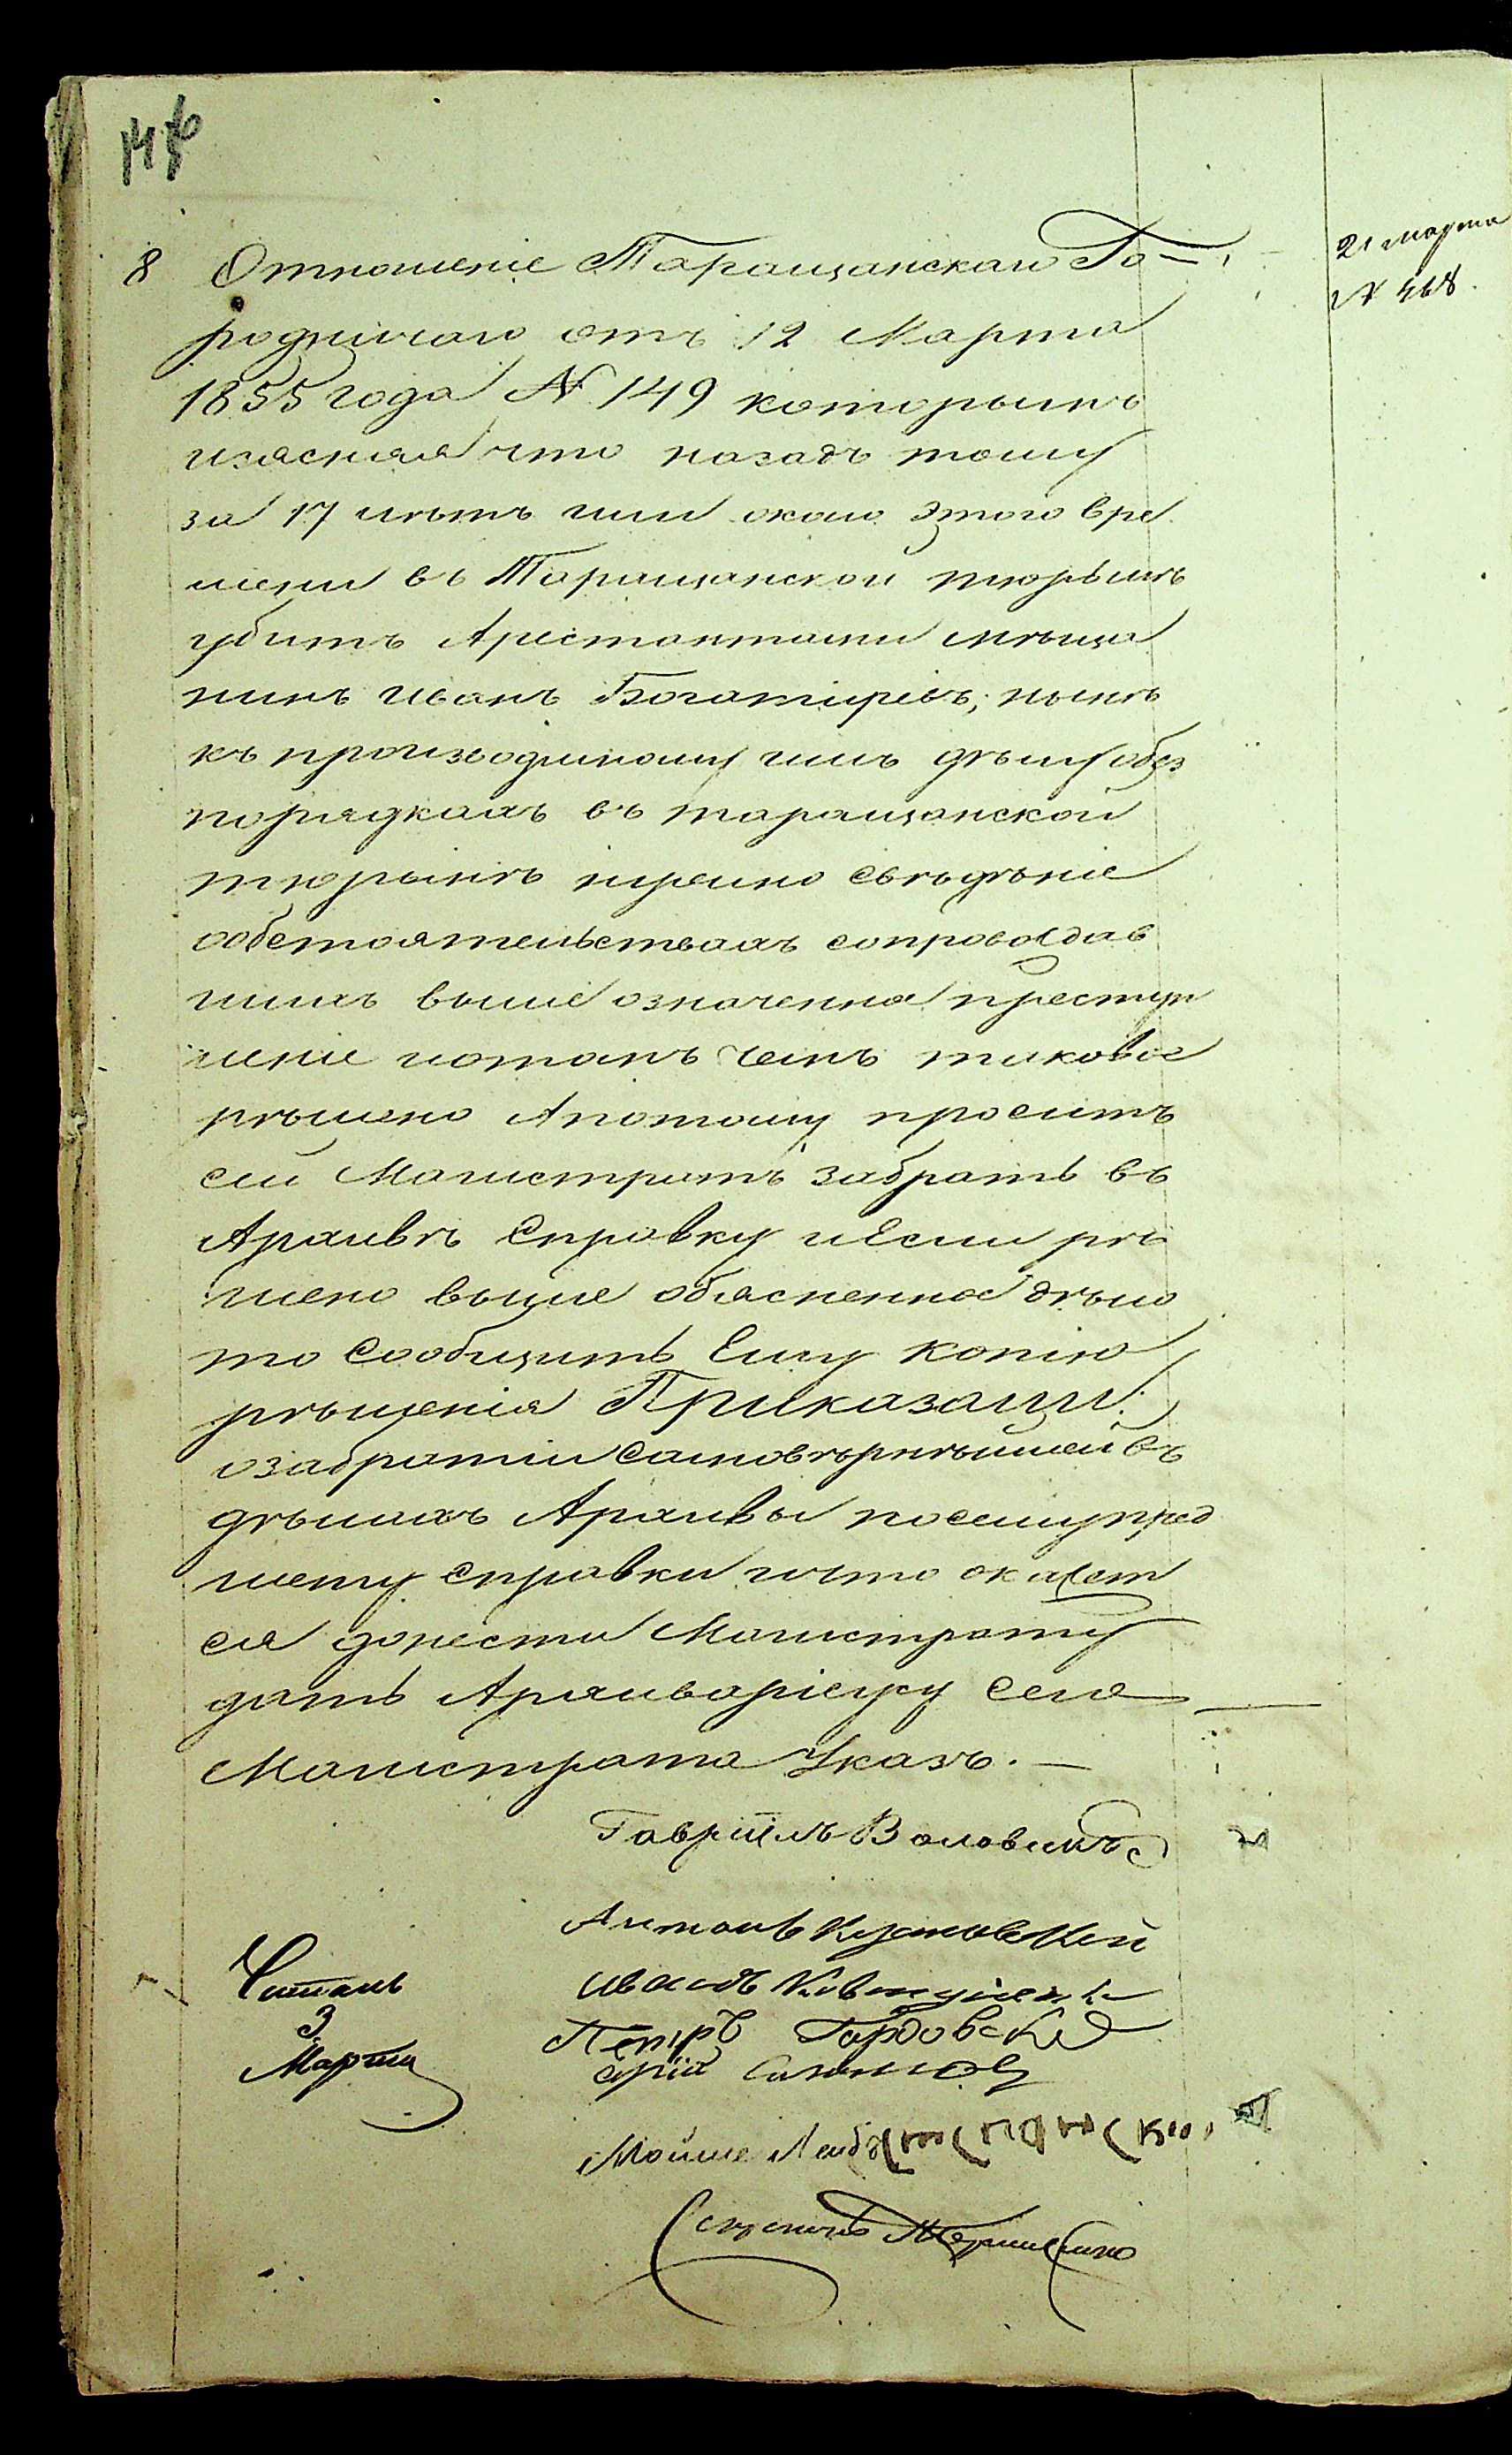 8 Отношеніе Таращанскаго Го-
родничаго отъ 12 Марта
1855 года № 149 которымъ
изясняя что назадъ тому
за 17 лѣтъ или около этого вре
мени въ Таращанской тюрьмѣ
убитъ Арестантами мѣща
нинъ Иванъ Богатирівъ, нынѣ
къ производимому имъ дѣлу обез
порядкахъ въ таращанской
тюрьмѣ нужно свѣдѣніе
ообстоятельствахъ сопровождав
шихъ выше означенное преступ
леніе икакъ кемъ таковое
рѣшено Апотому проситъ
сей Магистратъ забрать въ
Архивѣ Справку иЕсли рѣ
шено выше обясненное дѣло
то Сообщить Ему Копію
рѣшенія Приказали:
озабратіи Самовѣрнѣйшей въ
дѣлахъ Архивы посемупред
мету Справки ичто окажет
ся донести Магистрату
дать Архиваріусу Сего
Магистрата Указъ. —
21 марта
№ 468.
Гавріилъ Воловикъ
Антонъ
Иванъ
Петръ Гордовскій
Мойше Лейб
Читалъ
3
Марта